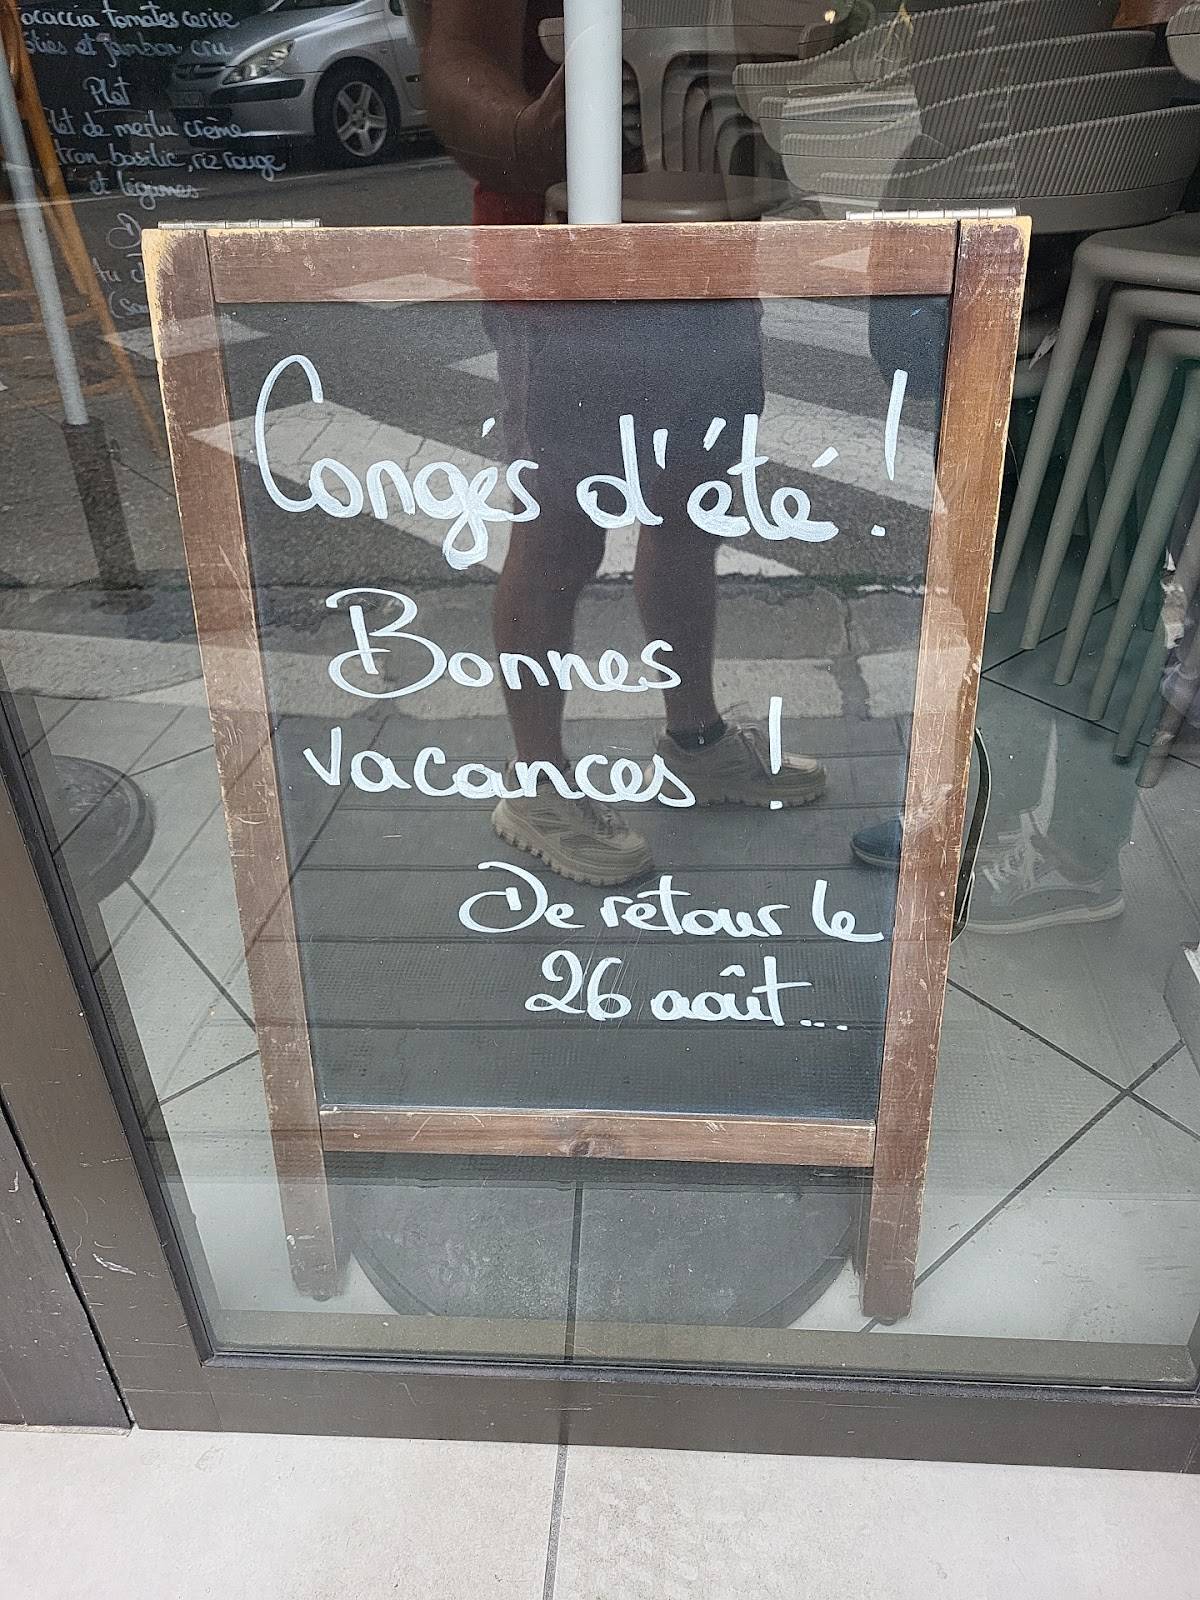 tomates cerise
et jambon cru
Plat
de merlu crème
basilic, riz rouge
et légumes
Congés d'été !
Bonnes
vacances !
De retour le
26 août...